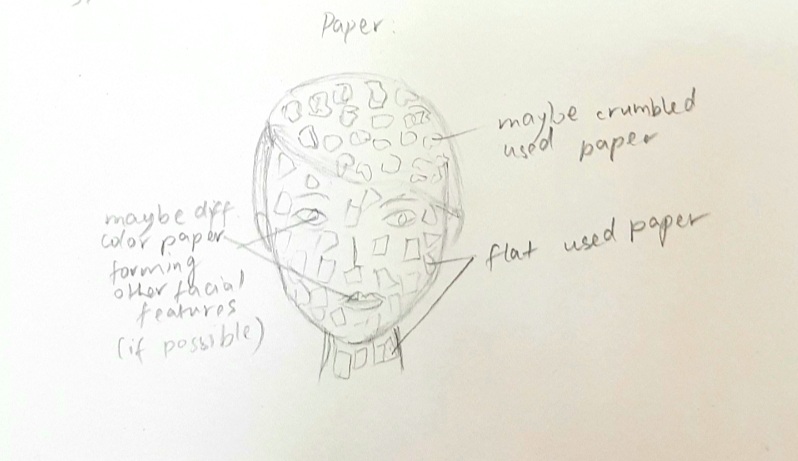 Paper:
maybe crumbled
used paper
maybe diff
color paper
forming
other facial
features
(if possible)
flat used paper